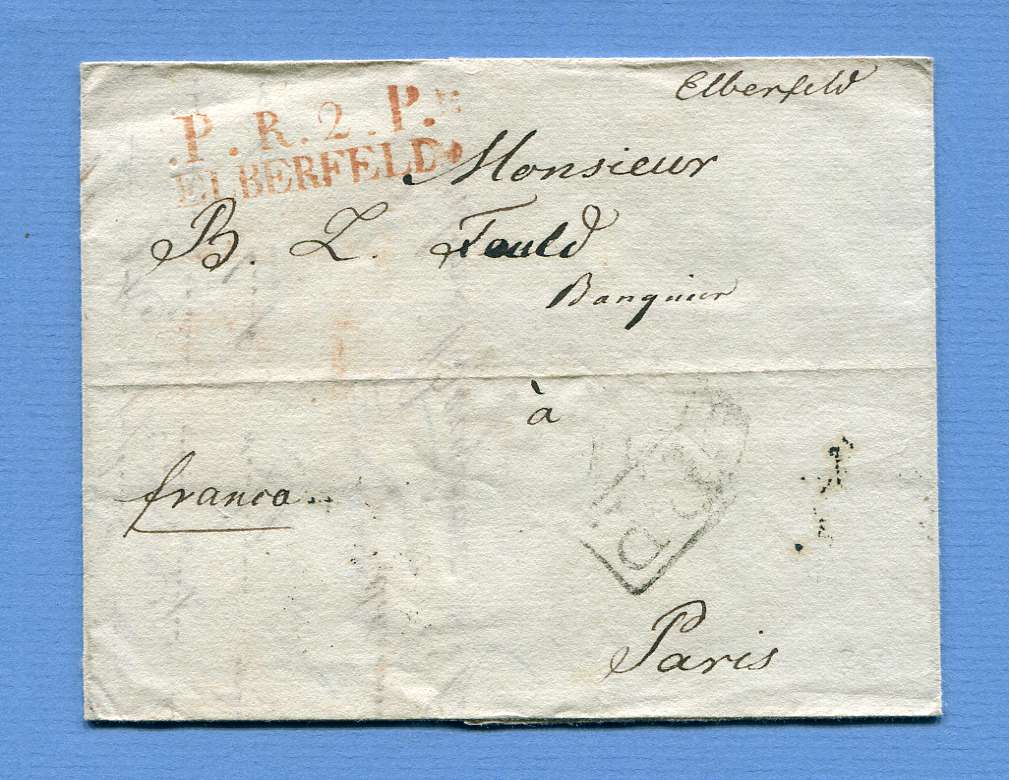 Elberfeld
.P.R.2.P.
ELBERFELD
Monsieur
B. L. Fould
Banquier
à
franco..
Paris